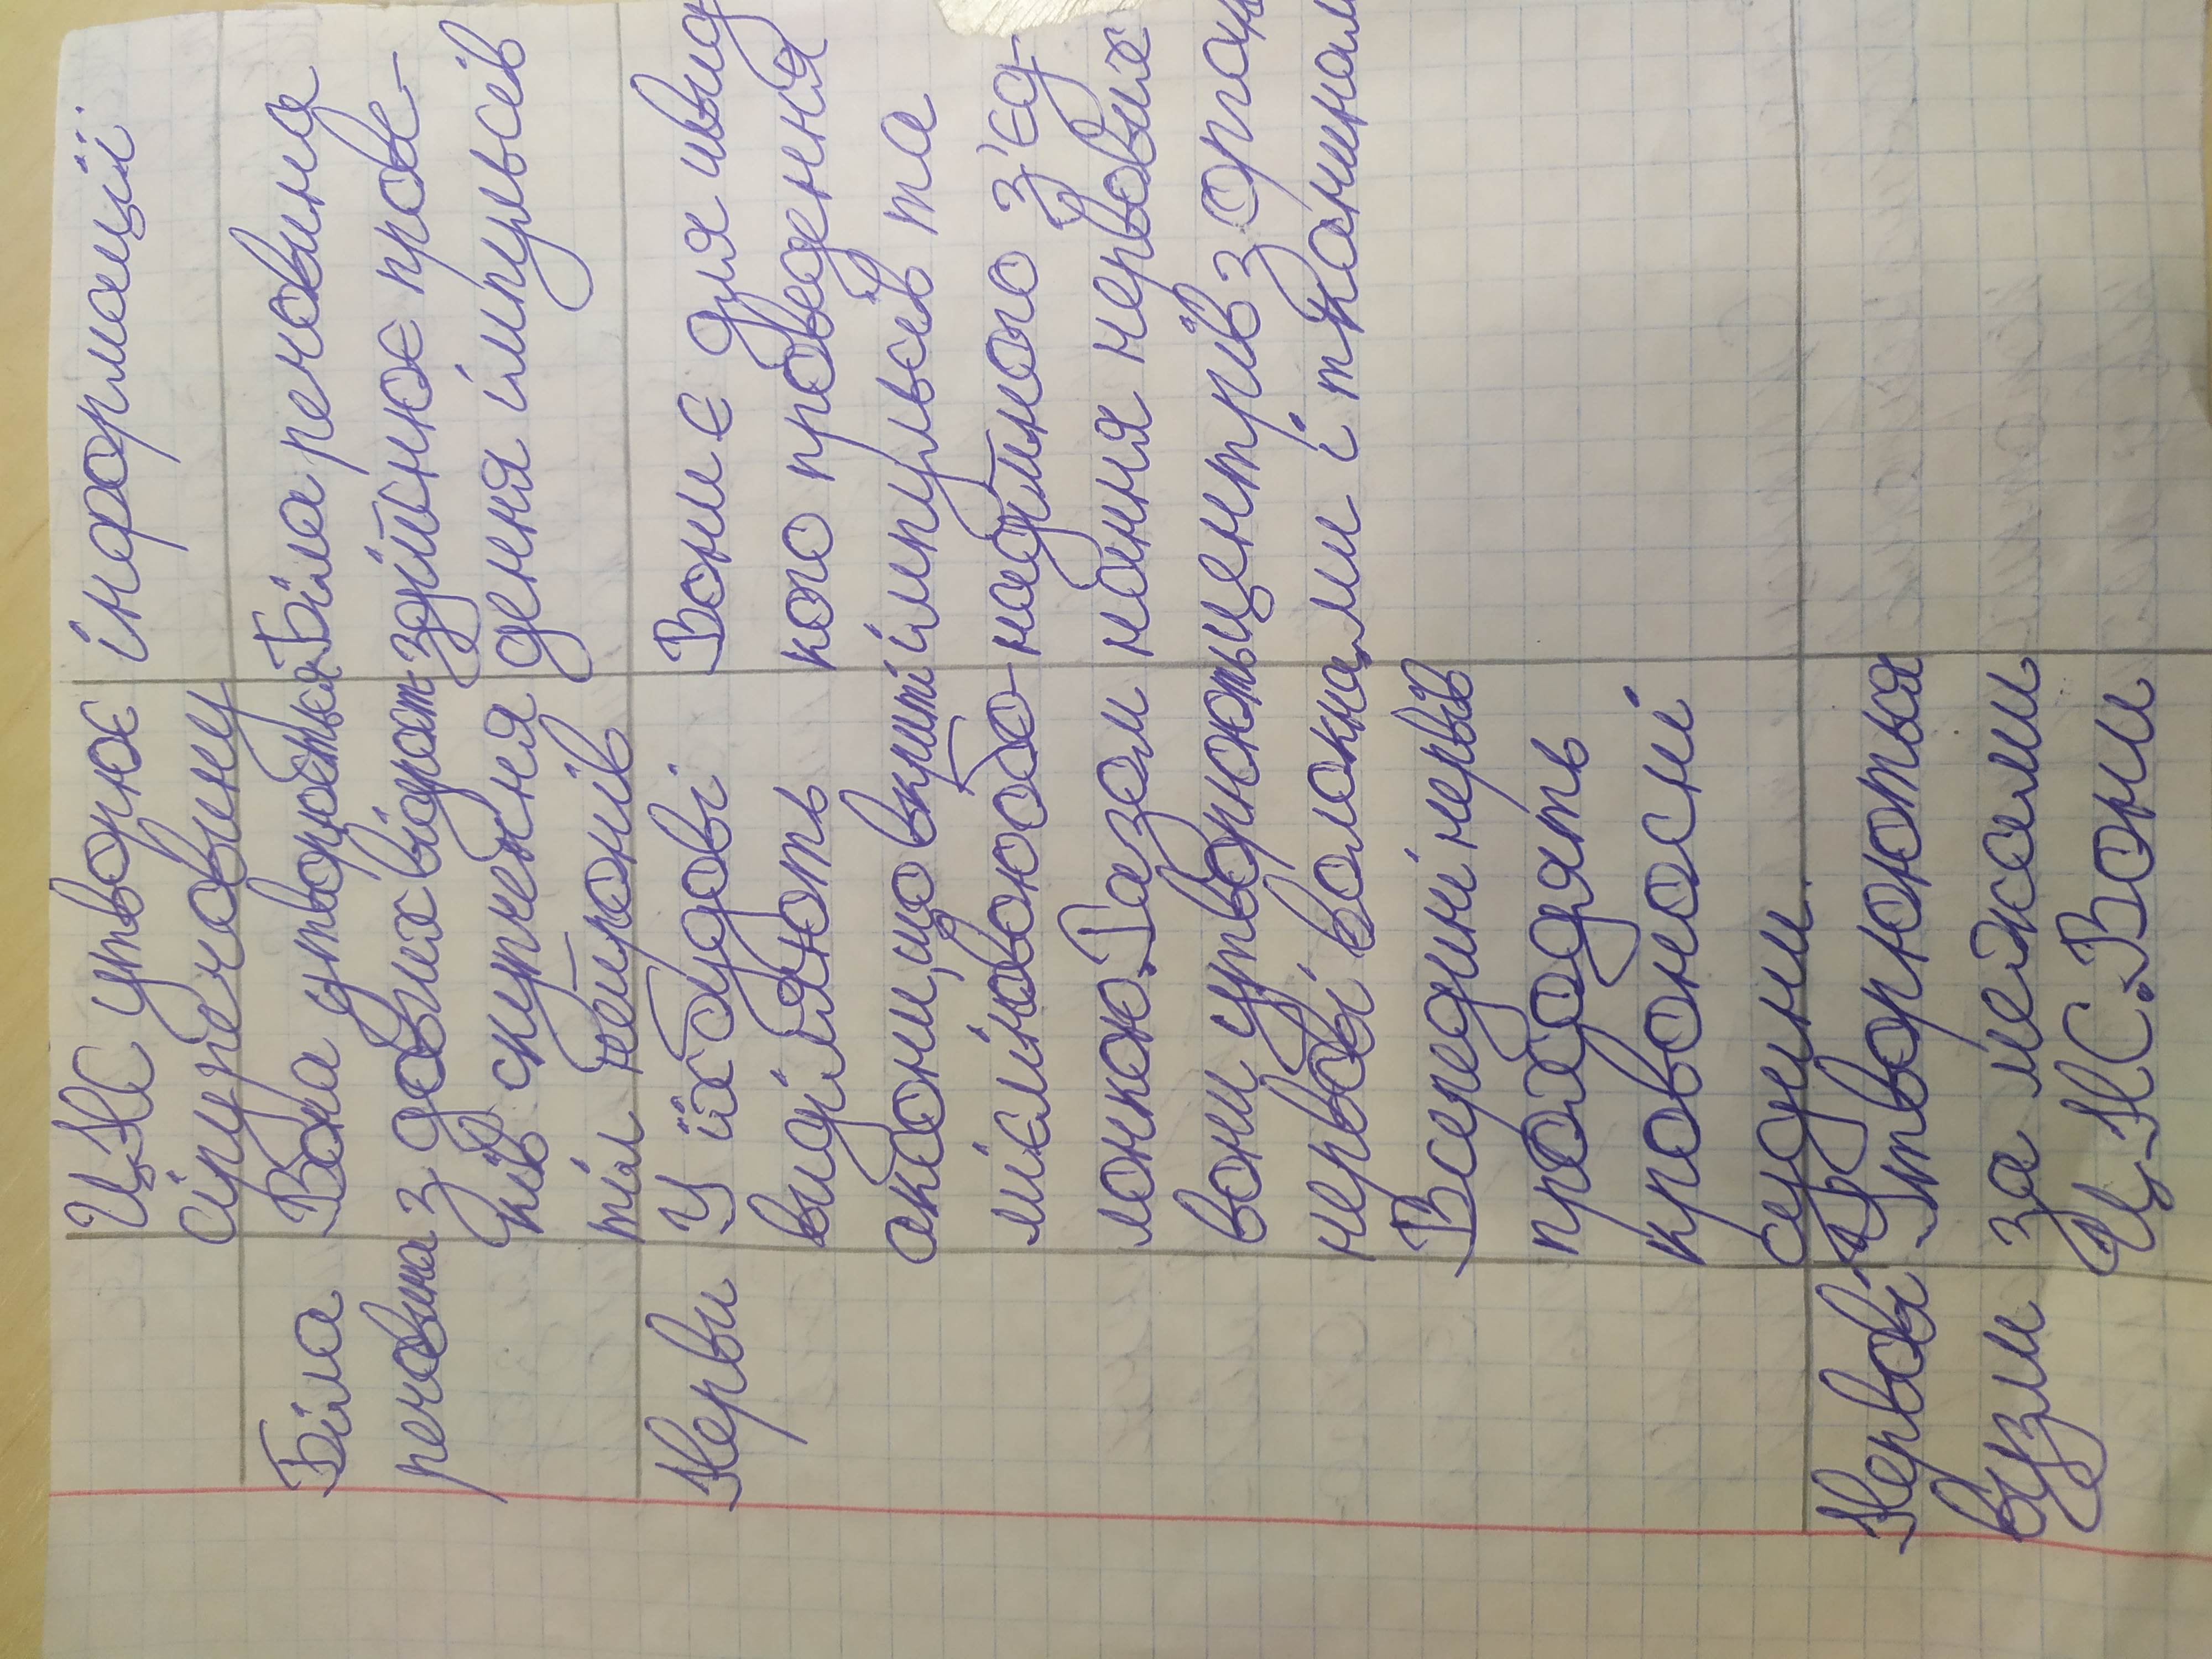 ЦНС утворює
сіру речовину
інформації.
Біла
речовина
Вона утворюється
з довгих відрост-
ків скупчення
тіл нейронів
Біла речовина
здійснює прове-
дення імпульсів
Нерви
У їх будові
виділяють
аксони, що вкриті
мієліновою обо-
лонкою. Разом
вони утворюють
нервові волокна.
Всередині нервів
проходять
кровоносні
судини.
Вони є для швид
кого проведення
імпульсів та
надійного з'єд-
нання нервових
центрів з орган
ами і тканинам
Нервові
вузли
Утворюються
за межами
ЦНС. Вони